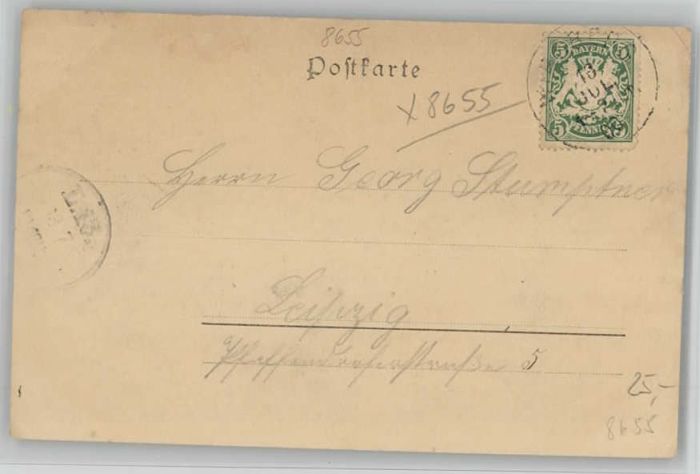 8655
Postkarte
x 8655
5 BAYERN 5
5 PFENNIG 5
13
JUL
Herrn Georg Stumptner
Leipzig
Pfaffendorferstraße 5
25,-
8655